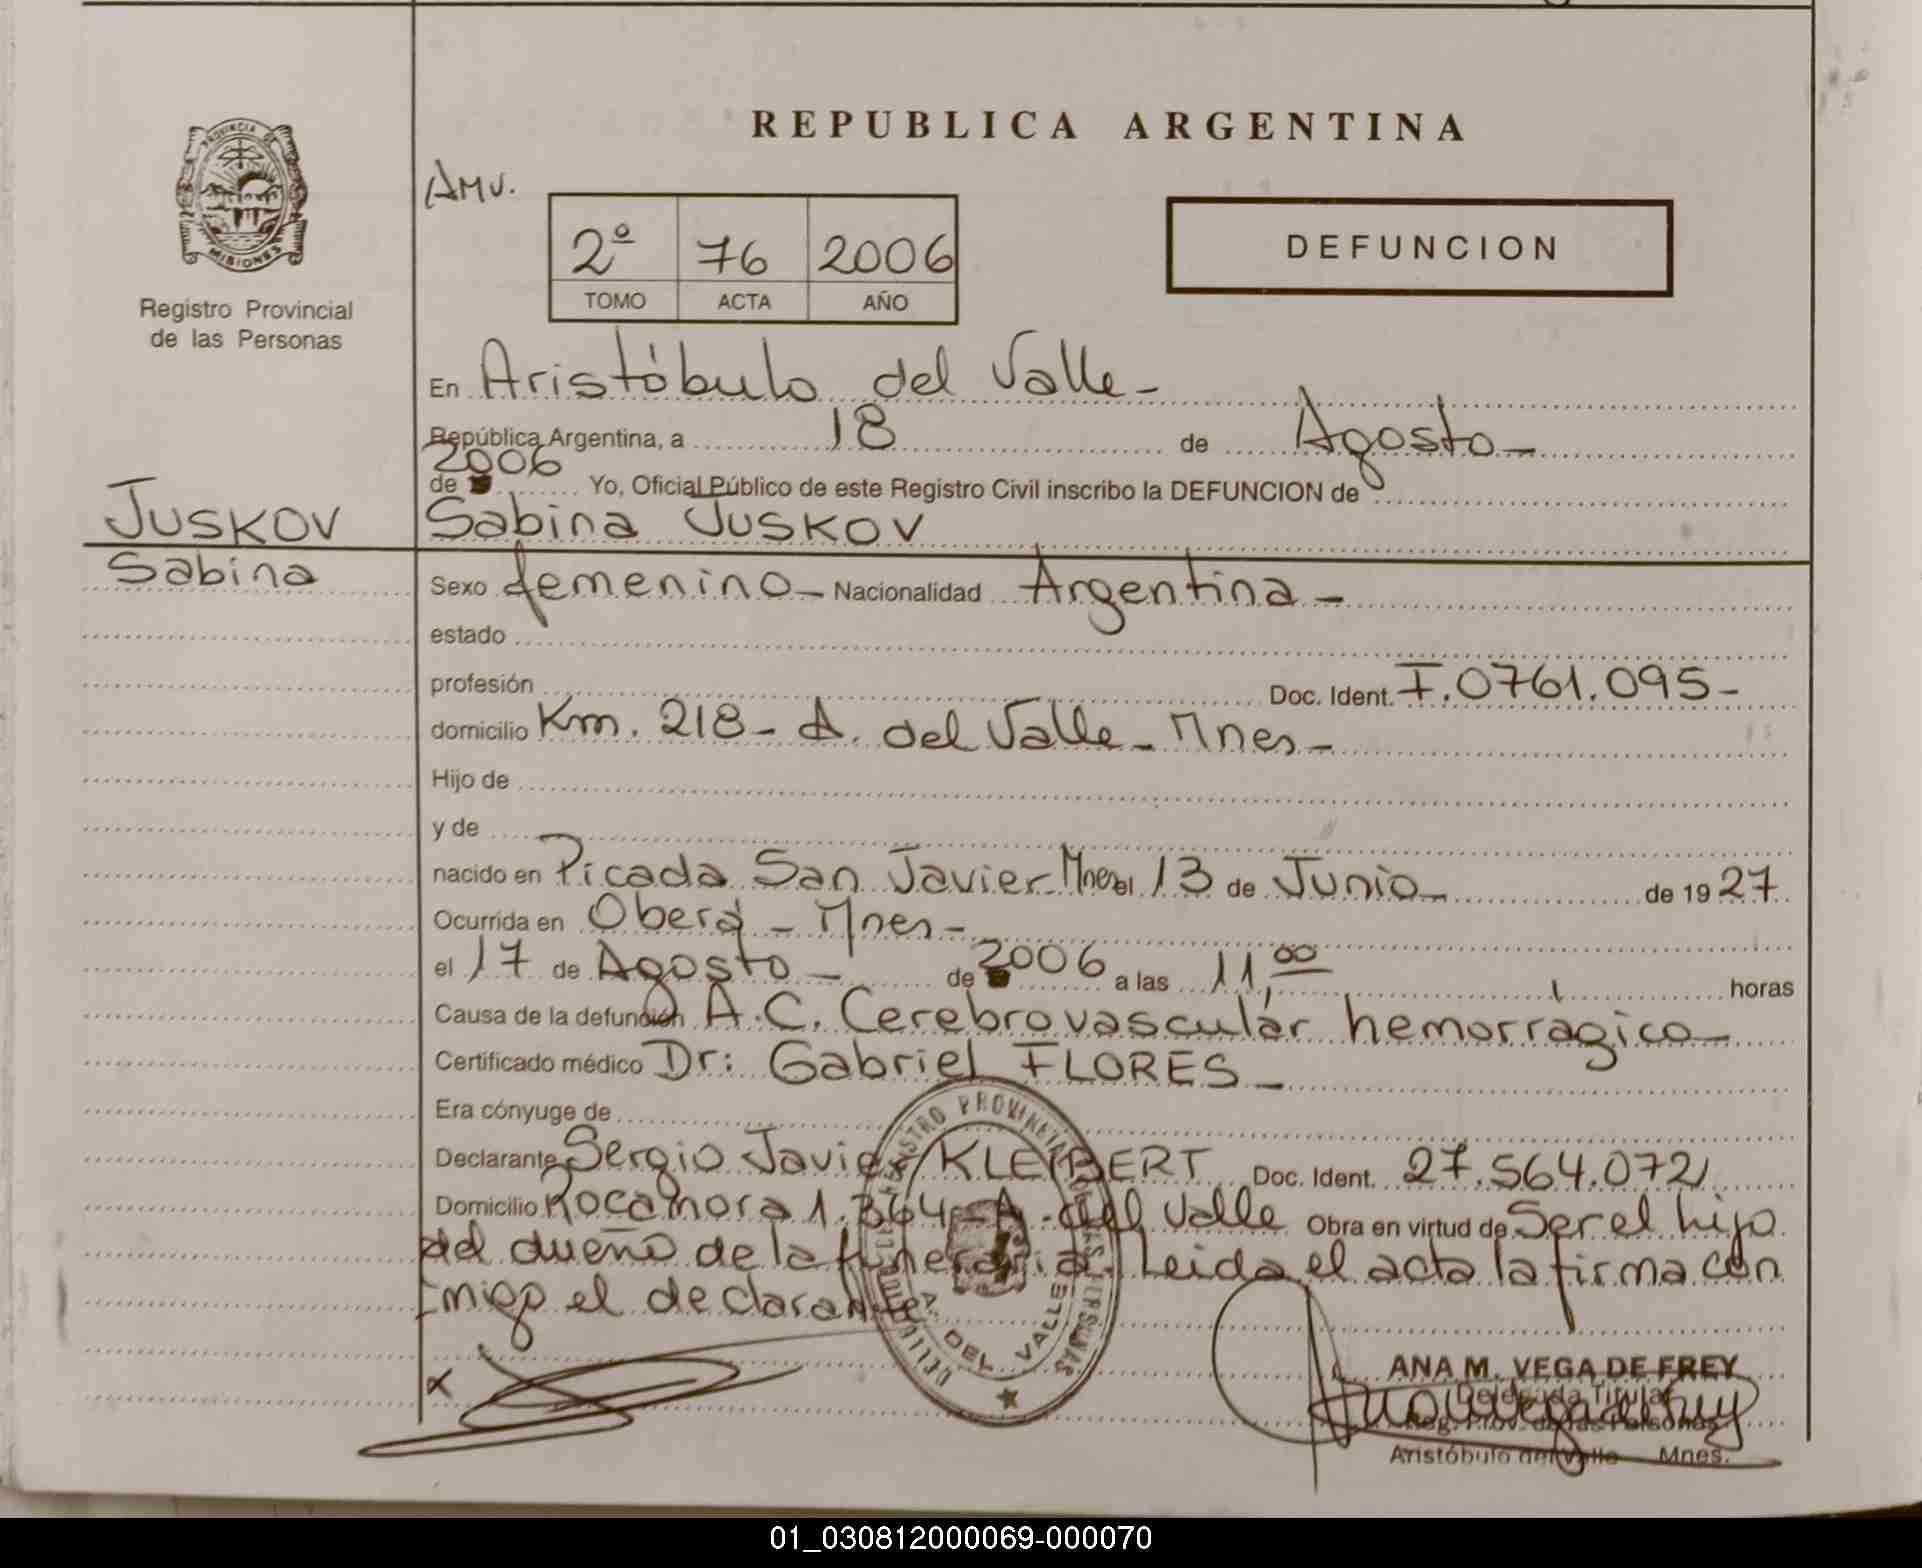 REPUBLICA ARGENTINA
PROVINCIA DE
MISIONES
Registro Provincial
de las Personas
AMV.
2º 76 2006
TOMO ACTA AÑO
DEFUNCION
En Aristóbulo del Valle -
República Argentina, a 18 de Agosto -
2006
de Yo, Oficial Público de este Registro Civil inscribo la DEFUNCION de
JUSKOV
Sabina
Sabina JUSKOV
Sexo femenino - Nacionalidad Argentina -
estado
profesión Doc. Ident. F.0761.095-
domicilio Km. 218 - A. del Valle - Mnes -
Hijo de
y de
nacido en Picada San Javier - Mnes el 13 de Junio - de 1927
Ocurrida en Oberá - Mnes -
el 17 de Agosto - de 2006 a las 11,00 horas
Causa de la defunción A.C. Cerebrovascular hemorragico -
Certificado médico Dr: Gabriel FLORES -
Era cónyuge de
Declarante Sergio Javier KLEIBERT Doc. Ident. 27.564.072
Domicilio Rocamora 1.364 - A. del Valle Obra en virtud de Ser el hijo
del dueño de la funeraria. Leida el acta la firma con
migo el declarante
A. DEL VALLE
ANA M. VEGA DE FREY
Delegada Titular
Reg. Prov. de las Personas
Aristóbulo del Valle Mnes.
01_030812000069-000070